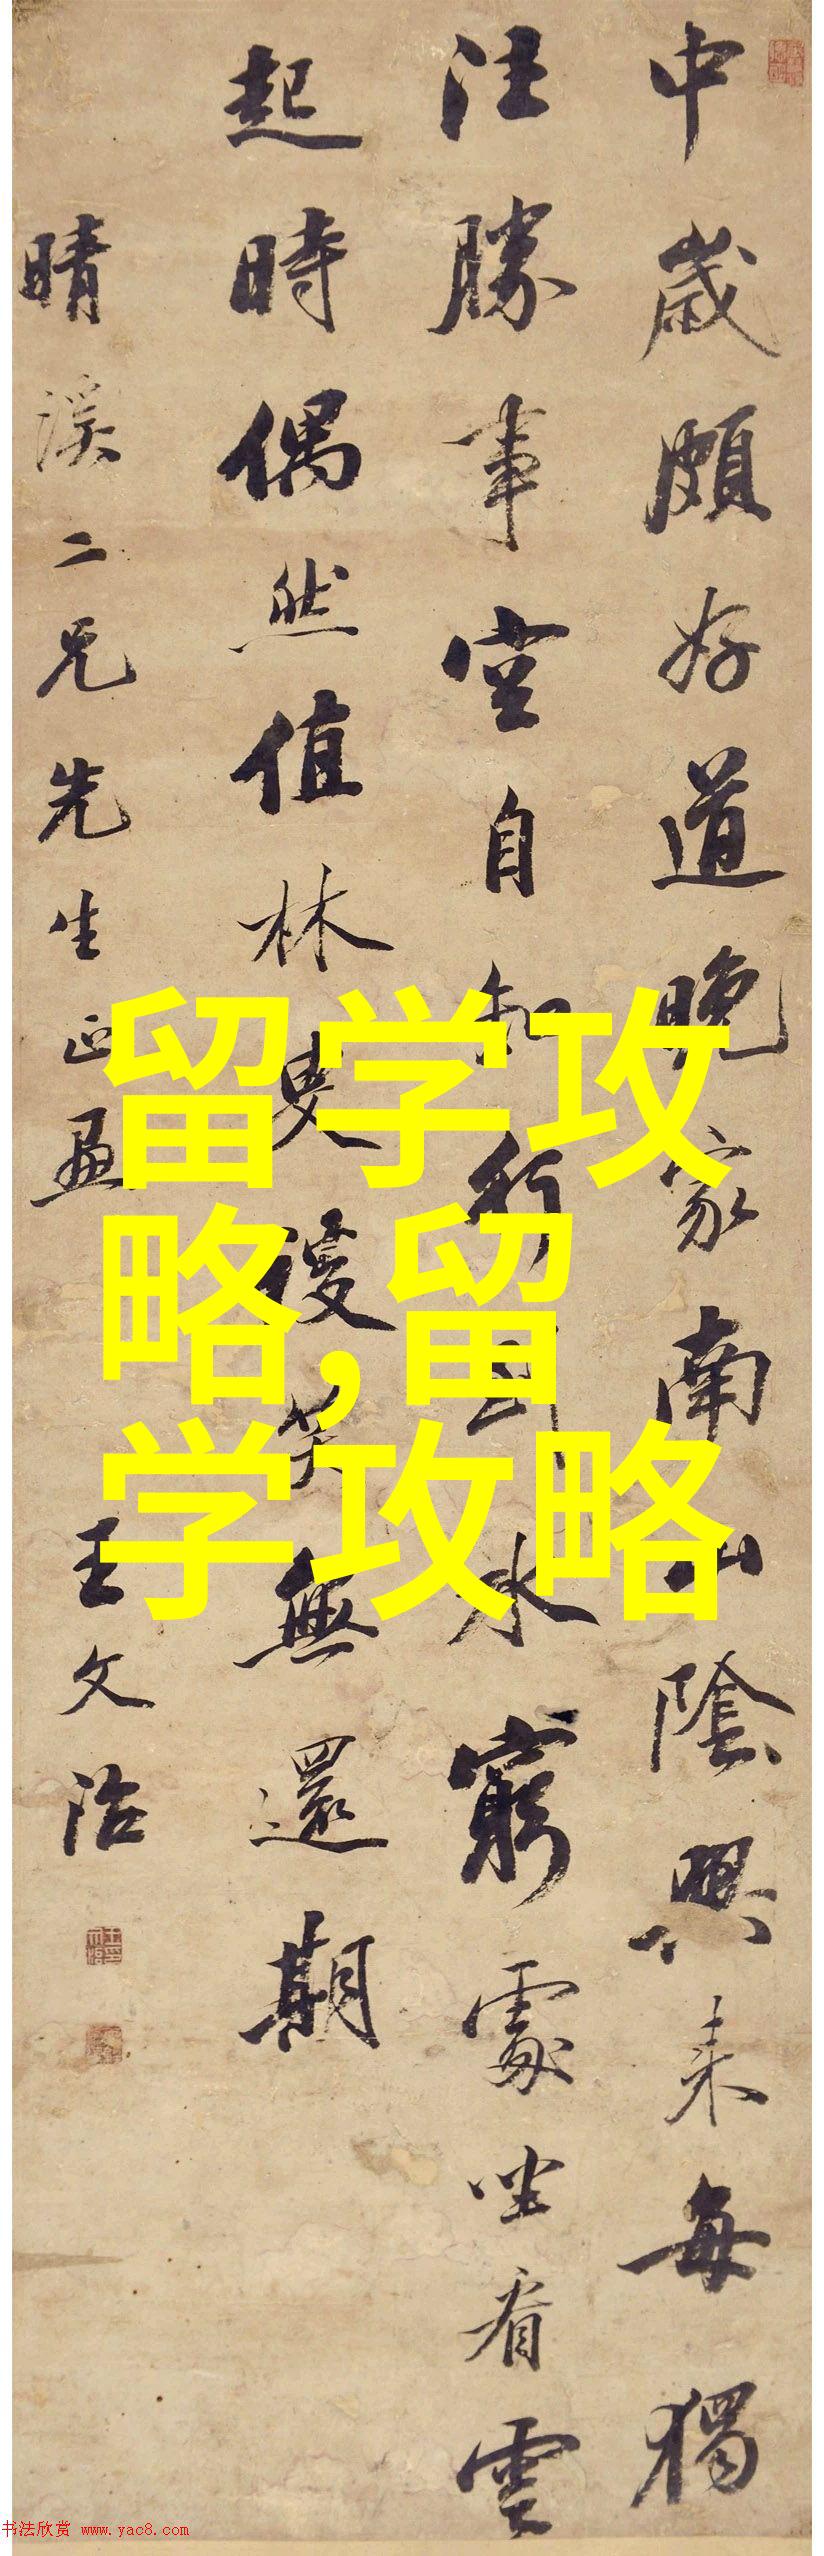 中歲頗好道晚家南山陲興來每獨
往勝事空自知行到水窮處坐看雲
起時偶然值林叟談笑無還期
晴溪二兄先生正畫
王文治
留学攻
略,留
学攻略
书法欣赏 www.yac8.com